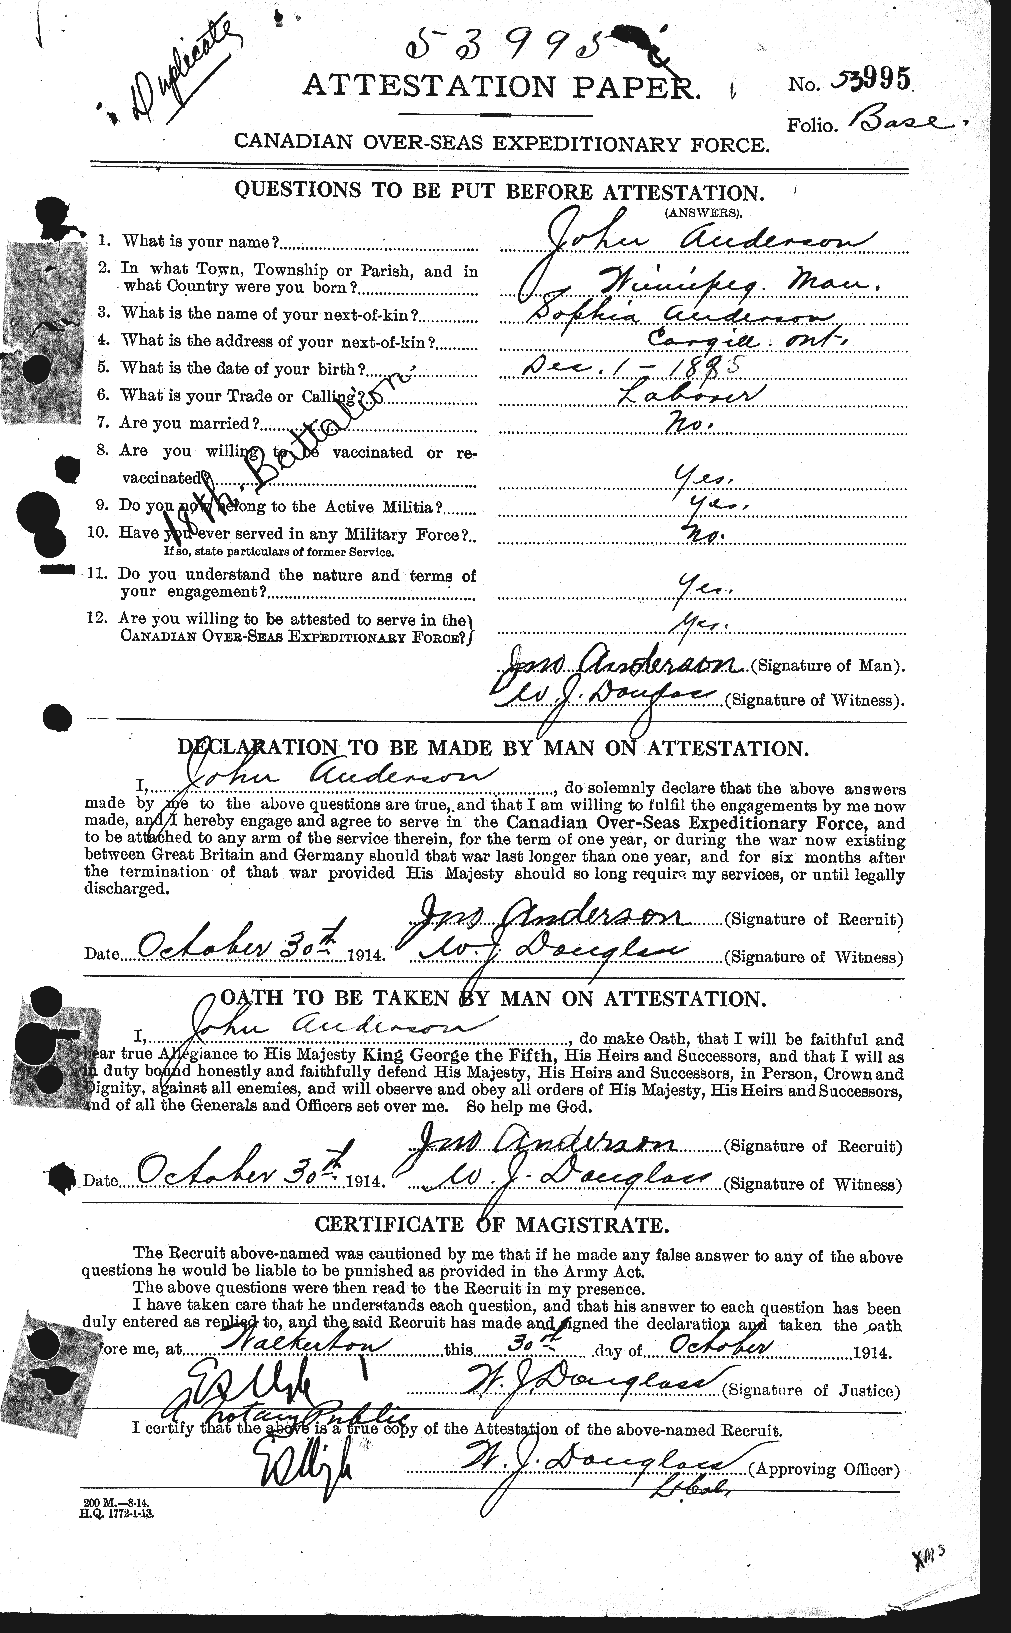 Duplicate
53995
ATTESTATION PAPER.
No. 53995
Folio. Base.
CANADIAN OVER-SEAS EXPEDITIONARY FORCE.
QUESTIONS TO BE PUT BEFORE ATTESTATION.
(ANSWERS).
1. What is your name? John Anderson
2. In what Town, Township or Parish, and in
what Country were you born? Winnipeg. Man.
3. What is the name of your next-of-kin? Sophia Anderson
4. What is the address of your next-of-kin? Cargill. Ont.
5. What is the date of your birth? Dec. 1 - 1895
6. What is your Trade or Calling? Laborer
7. Are you married? No.
8. Are you willing to be vaccinated or re-
vaccinated? Yes.
9. Do you now belong to the Active Militia? Yes.
10. Have you ever served in any Military Force? No.
If so, state particulars of former Service.
11. Do you understand the nature and terms of
your engagement? Yes.
12. Are you willing to be attested to serve in the
CANADIAN OVER-SEAS EXPEDITIONARY FORCE? Yes.
18th. Battalion
Jno Anderson (Signature of Man).
W. J. Douglass (Signature of Witness).
DECLARATION TO BE MADE BY MAN ON ATTESTATION.
I, John Anderson, do solemnly declare that the above answers
made by me to the above questions are true, and that I am willing to fulfil the engagements by me now
made, and I hereby engage and agree to serve in the Canadian Over-Seas Expeditionary Force, and
to be attached to any arm of the service therein, for the term of one year, or during the war now existing
between Great Britain and Germany should that war last longer than one year, and for six months after
the termination of that war provided His Majesty should so long require my services, or until legally
discharged.
Jno Anderson (Signature of Recruit)
Date October 30th 1914. W. J. Douglass (Signature of Witness)
OATH TO BE TAKEN BY MAN ON ATTESTATION.
I, John Anderson, do make Oath, that I will be faithful and
bear true Allegiance to His Majesty King George the Fifth, His Heirs and Successors, and that I will as
in duty bound honestly and faithfully defend His Majesty, His Heirs and Successors, in Person, Crown and
Dignity, against all enemies, and will observe and obey all orders of His Majesty, His Heirs and Successors,
and of all the Generals and Officers set over me. So help me God.
Jno Anderson (Signature of Recruit)
Date October 30th 1914. W. J. Douglass (Signature of Witness)
CERTIFICATE OF MAGISTRATE.
The Recruit above-named was cautioned by me that if he made any false answer to any of the above
questions he would be liable to be punished as provided in the Army Act.
The above questions were then read to the Recruit in my presence.
I have taken care that he understands each question, and that his answer to each question has been
duly entered as replied to, and the said Recruit has made and signed the declaration and taken the oath
before me, at Walkerton this 30th day of October 1914.
W. J. Douglass (Signature of Justice)
A Notary Public
I certify that the above is a true copy of the Attestation of the above-named Recruit.
W. J. Douglass (Approving Officer)
Lt Col,
200 M.—8-14.
H.Q. 1772-1-13.